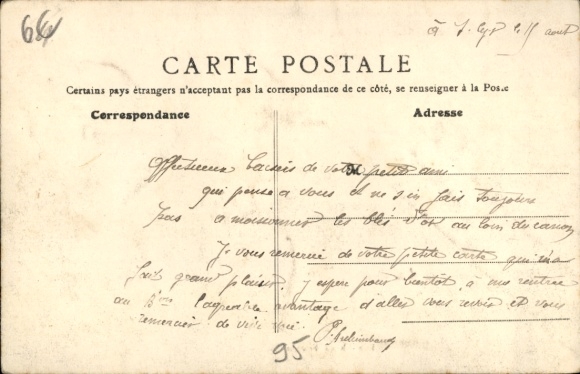 64
à S. le 15 août
CARTE POSTALE
Certains pays étrangers n'acceptant pas la correspondance de ce côté, se renseigner à la Poste
Correspondance
Adresse
Affectueux baisers de votre petit ami
qui pense a vous et ne s'en fais toujours
pas a moissonner les blés d'or au loin du canon
Je vous remercie de votre petite carte qui m'a
fait grand plaisir. J espere pour bientot a ma rentrée
au l'agreable avantage d'aller vous revoir et vous
remercier de vive
P.
95